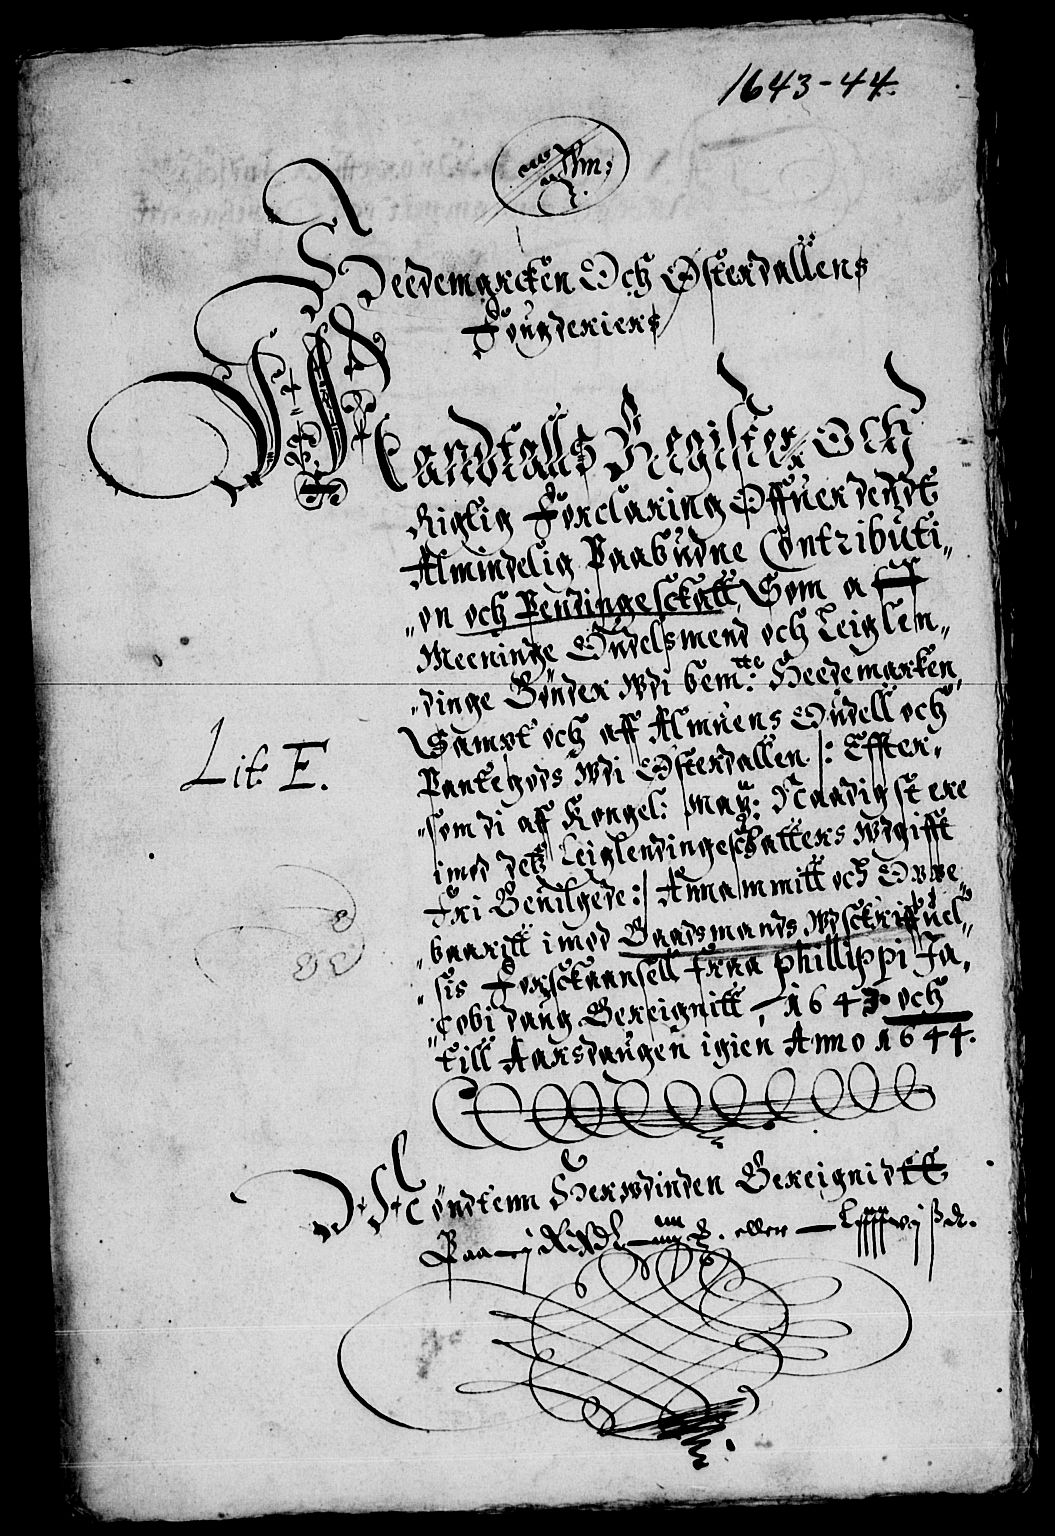 1643-44.
Heedemarcken Och Østerdallens
Fougderiers
Mandtalls Register Och
Rigtig Forclaring Offuer dendt
Almindelig Paabudne Contributi„
„on och Pendingesckatt, Som aff
Meeninge Oudelsmend och Leiglen„
„dinge Bønder Wdi bemte: Heedemarken,
Sampt och aff Almuens Oudell och
Pantegods Wdi Østerdallen /: Effter„
„som di aff Kongel: May: Naadigst ere
imod detz Leiglendingeschatters Wdgifft
Fri Beuilgede :/ Annammitt och Oppe„
„baaritt imod Baadsmands Wdsckriffuel„
„sis Forsckaansell Fraa Phillippi Ja„
„cobi daug Bereignitt, 1643 och
till Aarsdaugen igien Anno 1644.
Lit E.
Huondtenn Herwdinden Bereignidtt
Paa eller